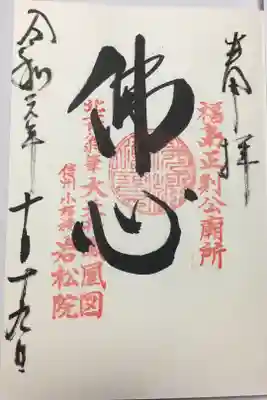 奉拝
福島正則公廟所
佛心
北斎翁筆大天井鳳凰図
信州小布施 岩松院
令和元年十月十九日